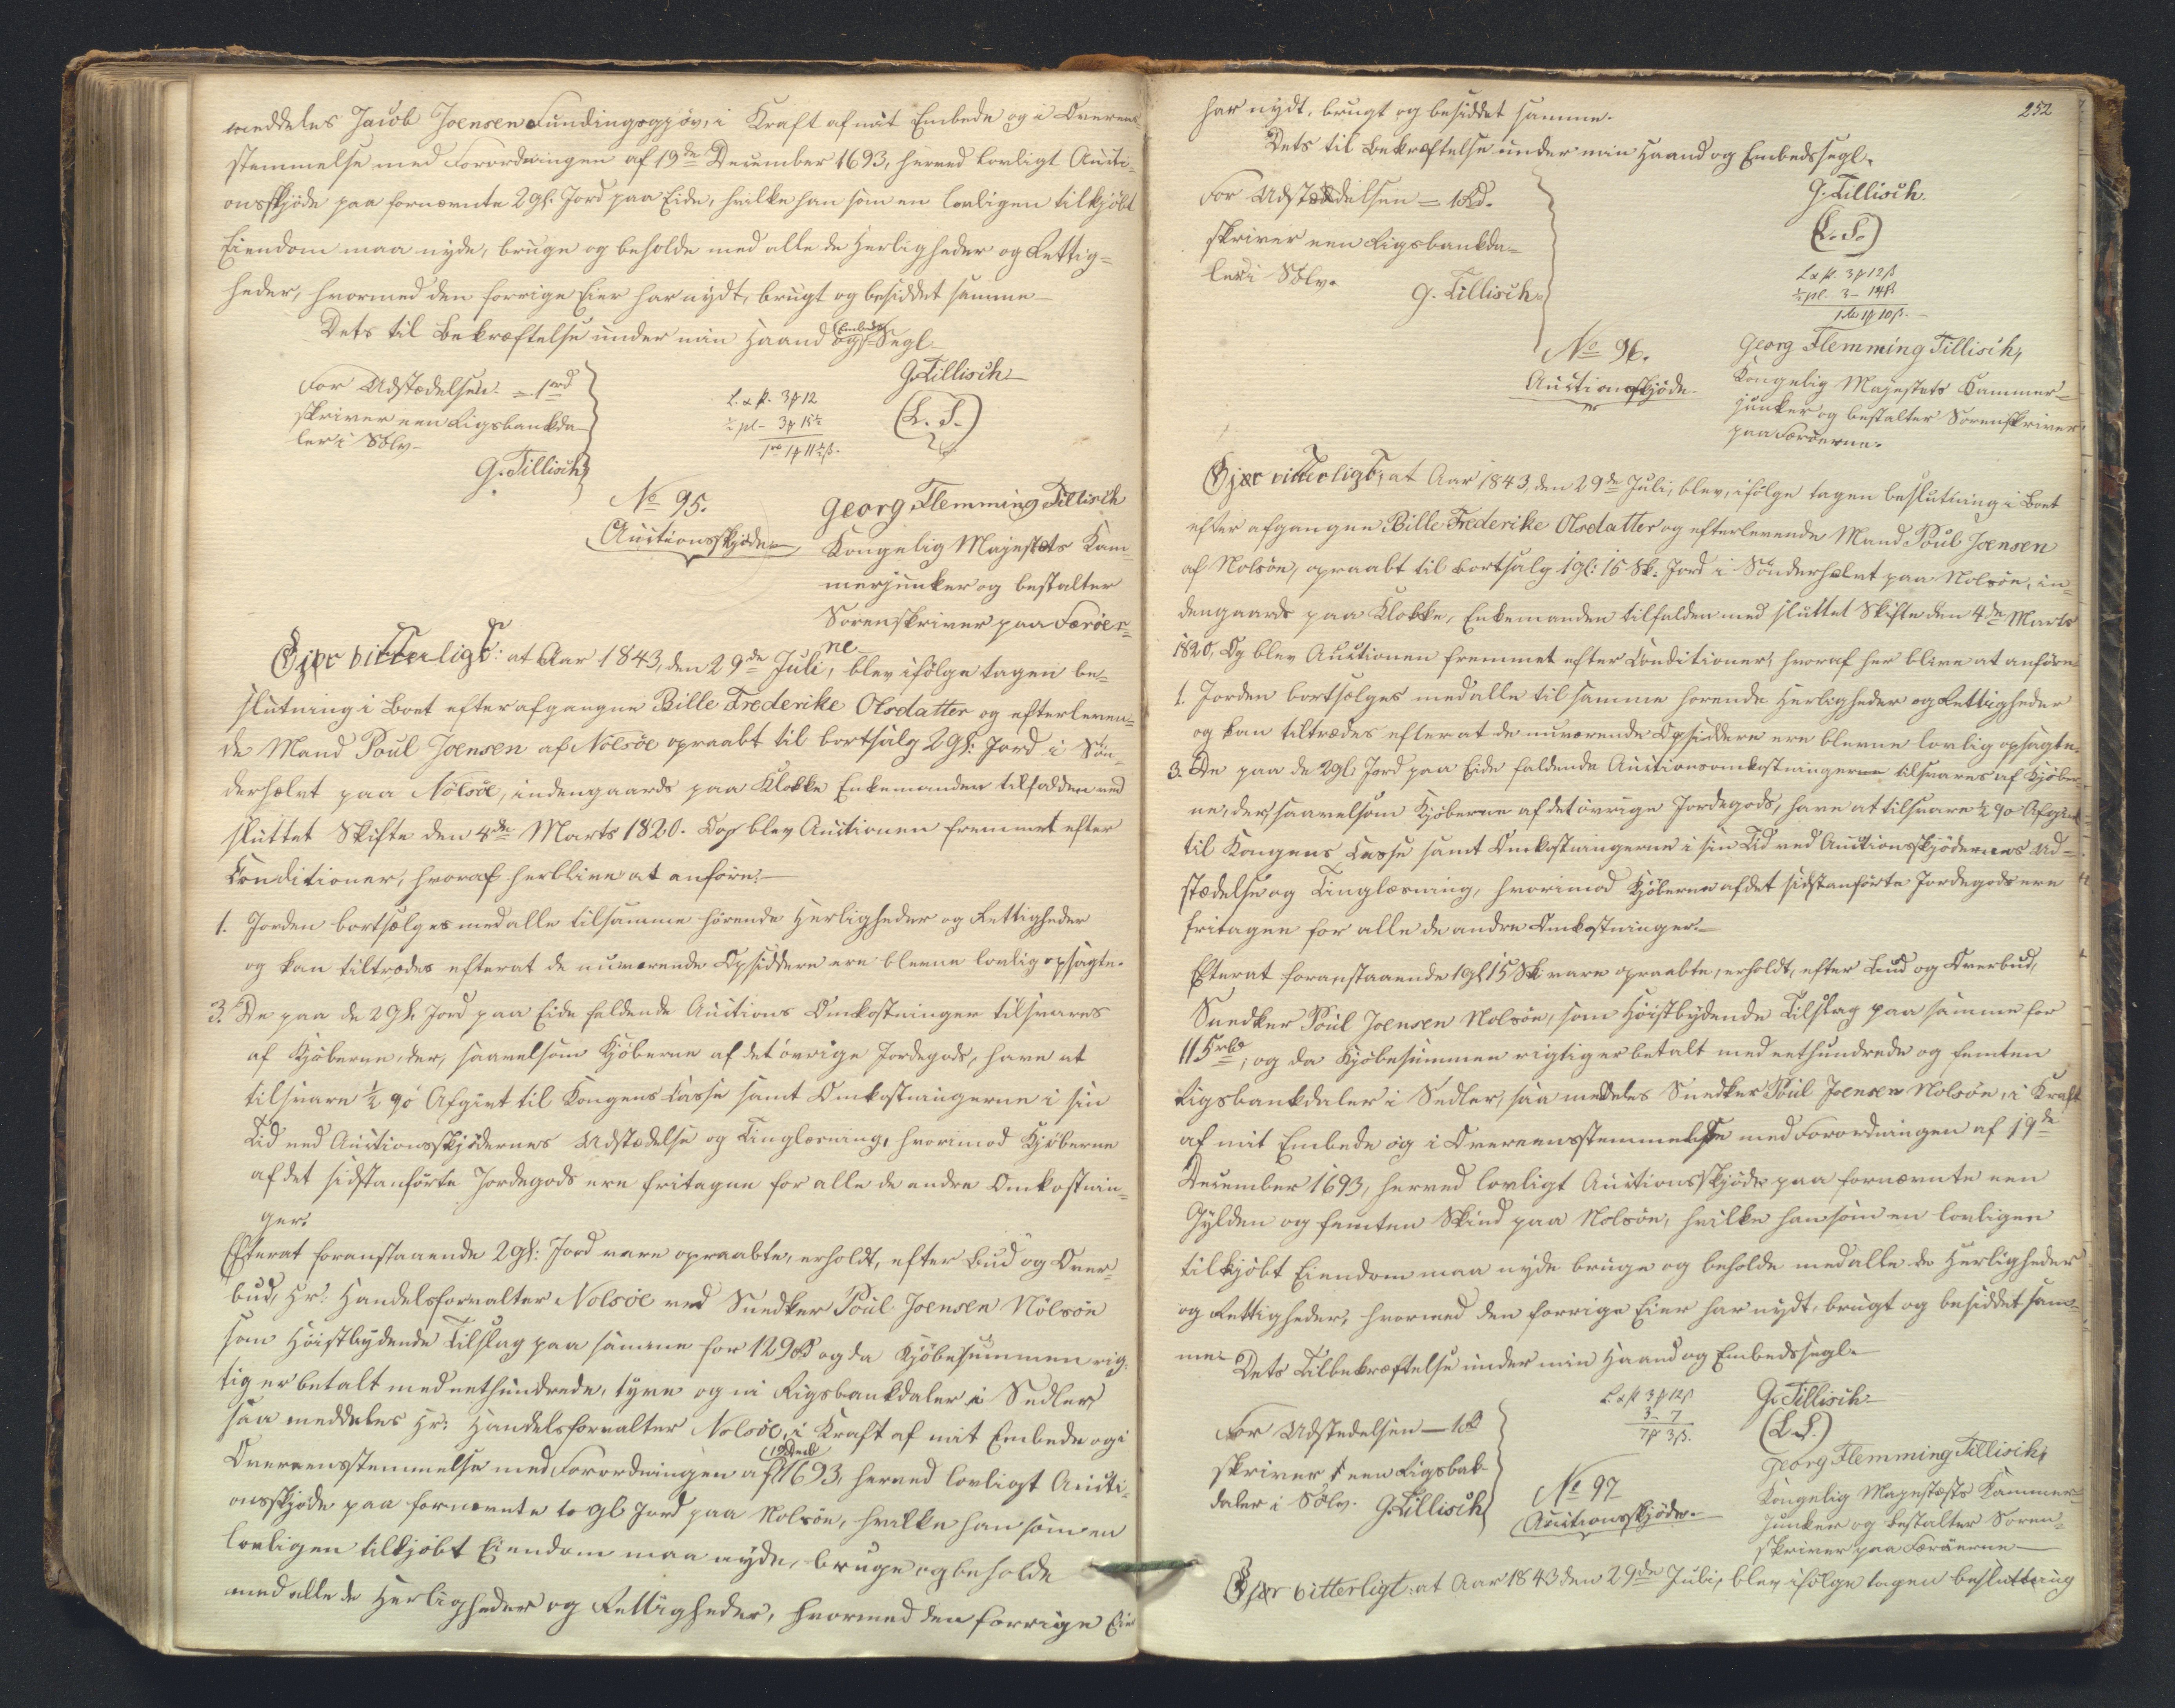 meddeles Jacob Joensen Fundingsgjov, i Kraft af mit Embede og i Overens-
stemmelse med Forordningen af 19de December 1693, herved lovligt Aucti-
onsskjöde paa fornævnte 2 gl. Jord paa Eide, hvilke han som en lovligen tilkjöbt
Eiendom maa nyde, bruge og beholde med alle de Herligheder og Rettig-
heder, hvormed den forrige Eier har nydt, brugt og besiddet samme.
Dets til Bekræftelse under min Haand og Embeds Segl.
G. Tillisch
(L. S.)
For Udstædelsen = 1 rd
skriver een Rigsbankda-
ler i Sölv.
G. Tillisch
L. & p. 3 ß 12
½ pl - 3 ß 15½
1 rd 1 ß 11½ ß.
No 95.
Auctionsskjöde.
Georg Flemming Tillisch
Kongelig Majestæts Kam-
merjunker og bestalter
Sorenskriver paa Færöer-
ne.
Gjör vitterligt: at Aar 1843, den 29de Juli, blev ifölge tagen be-
slutning i Boet efter afgangne Bille Frederike Olsdatter og efterleven-
de Mand Poul Joensen af Nolsöe opraabt til bortsalg 2 gl. Jord i Sön-
derhælvt paa Nolsöe, indengaards paa Klokke Enkemanden tilfalden ved
sluttet Skifte den 4de Marts 1820. Og blev Auctionen fremmet efter
Conditioner, hvoraf her blive at anföre:
1. Jorden bortsælges med alle til samme hörende Herligheder og Rettigheder
og kan tiltrædes efterat de nuværende Opsiddere ere blevne lovlig opsagte.
3. De paa de 2 gl. Jord paa Eide faldende Auctions Omkostninger tilsvares
af Kjöberne, der, saavelsom Kjöberne af det övrige Jordegods, have at
tilsvare ½ %o Afgivt til Kongens Casse samt Omkostningerne i sin
Tid ved Auctionsskjödernes Udstædelse og Tinglæsning, hvorimod Kjöberne
af det sidstanförte Jordegods ere fritagne for alle de andre Omkostnin-
ger.
Efterat foranstaaende 2 gl. Jord vare opraabte, erholdt, efter Bud og Over-
bud, Hr. Handelsforvalter Nolsöe ved Snedker Poul Joensen Nolsöe
som Höistbydende Tilslag paa samme for 129 rd og da Kjöbesummen rig-
tig er betalt med eethundrede, tyve og ni Rigsbankdaler i Sedler
saa meddeles Hr. Handelsforvalter Nolsöe, i Kraft af mit Embede og i
Overeensstemmelse med Forordningen af 19 Decb 1693, herved lovligt Aucti-
onsskjöde paa fornævnte to gl Jord paa Nolsöe, hvilke han som en
lovligen tilkjöbt Eiendom maa nyde, bruge og beholde
med alle de Herligheder og Rettigheder, hvormed den forrige Eier
252
har nydt, brugt og besiddet samme.
Dets til Bekræftelse under min Haand og Embedssegl.
G. Tillisch.
(L. S.)
For Udstædelsen = 1 Rd.
skriver een Rigsbankda-
ler i Sölv.
G. Tillisch
L & p. 3 ß 12 ß
½ pl. 3 - 14 ß
1 rd 1 ß 10 ß.
No 96.
Auctionsskjöde.
Georg Flemming Tillisch,
Kongelig Majestæts Kammer-
junker og bestalter Sorenskriver
paa Færöerne.
Gjör vitterligt, at Aar 1843, den 29de Juli, blev, ifölge tagen beslutning i Boet
efter afgangne Bille Frederike Olsdatter og efterlevende Mand Poul Joensen
af Nolsöe, opraabt til bortsalg 1 gl: 15 Sk. Jord i Sönderhælvt paa Nolsöe, in-
dengaards paa Klokke, Enkemanden tilfalden med sluttet Skifte den 4de Marts
1820. Og blev Auctionen fremmet efter Conditioner, hvoraf her blive at anföre:
1. Jorden bortsælges med alle til samme hörende Herligheder og Rettigheder
og kan tiltrædes efterat de nuværende Opsiddere ere blevne lovlig opsagte.
3. De paa de 2 gl. Jord paa Eide faldende Auctionsomkostningerne tilsvares af Kjöber-
ne, der, saavelsom Kjöberne af det övrige Jordegods, have at tilsvare ½ %o Afgivt
til Kongens Casse samt Omkostningerne i sin Tid ved Auctionsskjödernes Ud-
stædelse og Tinglæsning, hvorimod Kjöberne af det sidstanförte Jordegods ere
fritagne for alle de andre Omkostninger.
Efterat foranstaaende 1 gl 15 Sk vare opraabte, erholdt, efter Bud og Overbud,
Snedker Poul Joensen Nolsöe, som Höistbydende Tilslag paa samme for
115 rbd, og da Kjöbesummen rigtig er betalt med eethundrede og femten
Rigsbankdaler i Sedler, saa meddeles Snedker Poul Joensen Nolsöe, i Kraft
af mit Embede og i Overeensstemmelse med Forordningen af 19de
December 1693, herved lovligt Auctionsskjöde paa fornævnte een
Gylden og femten Skind paa Nolsöe, hvilke han som en lovligen
tilkjöbt Eiendom maa nyde bruge og beholde med alle de Herligheder
og Rettigheder, hvormed den forrige Eier har nydt, brugt og besiddet sam-
me. Dets Tilbekræftelse under min Haand og Embedssegl.
G. Tillisch
(L. S.)
L. & p 3 ß 12 ß
3 - 7
7 ß 3 ß.
For Udstedelsen - 1 Rd
skriver een Rigsbak-
daler i Sölv. G. Tillisch
No 97
Auctionsskjöde.
Georg Flemming Tillisch,
Kongelig Majestæts Kammer-
junker og bestalter Soren-
skriver paa Færöerne
Gjör vitterligt: at Aar 1843 den 29de Juli, blev ifölge tagen beslutning